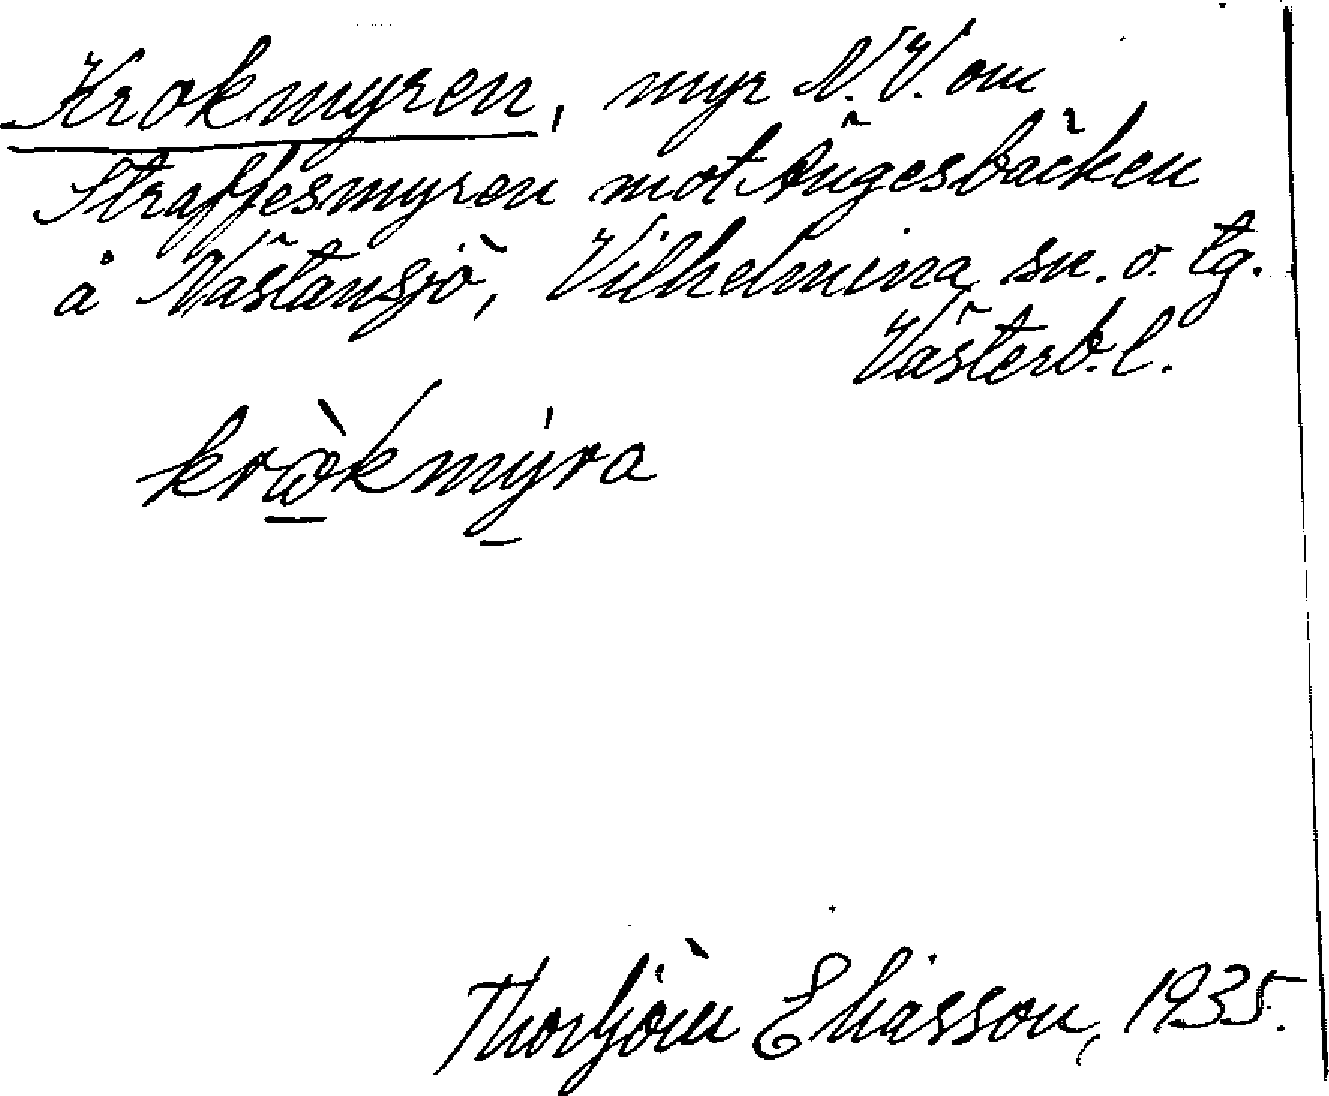 Krokmyren, myr N.V. om
Straffesmyren mot Ångesbäcken
å Västansjö, Vilhelmina sn. o. tg.
Västerb. l.
kròkmýra
Thorbjörn Eliasson, 1935.